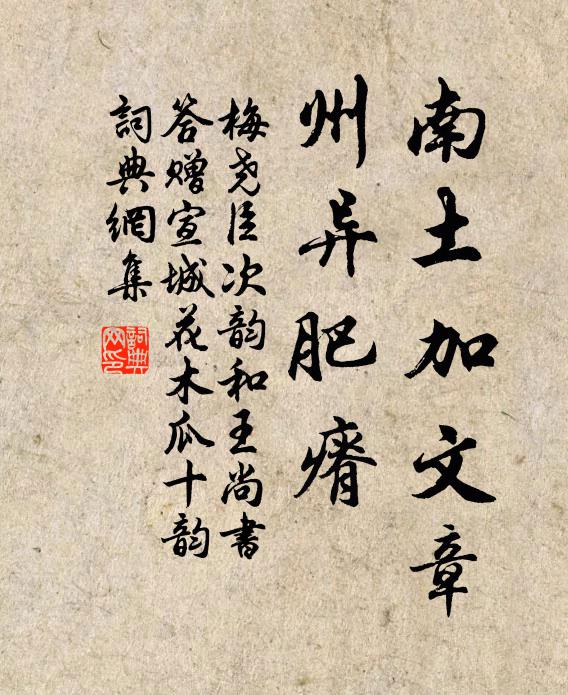 南土加文章
州异肥瘠
梅尧臣次韵和王尚书
答赠宣城花木瓜十韵
詞典網集
詞典
网印